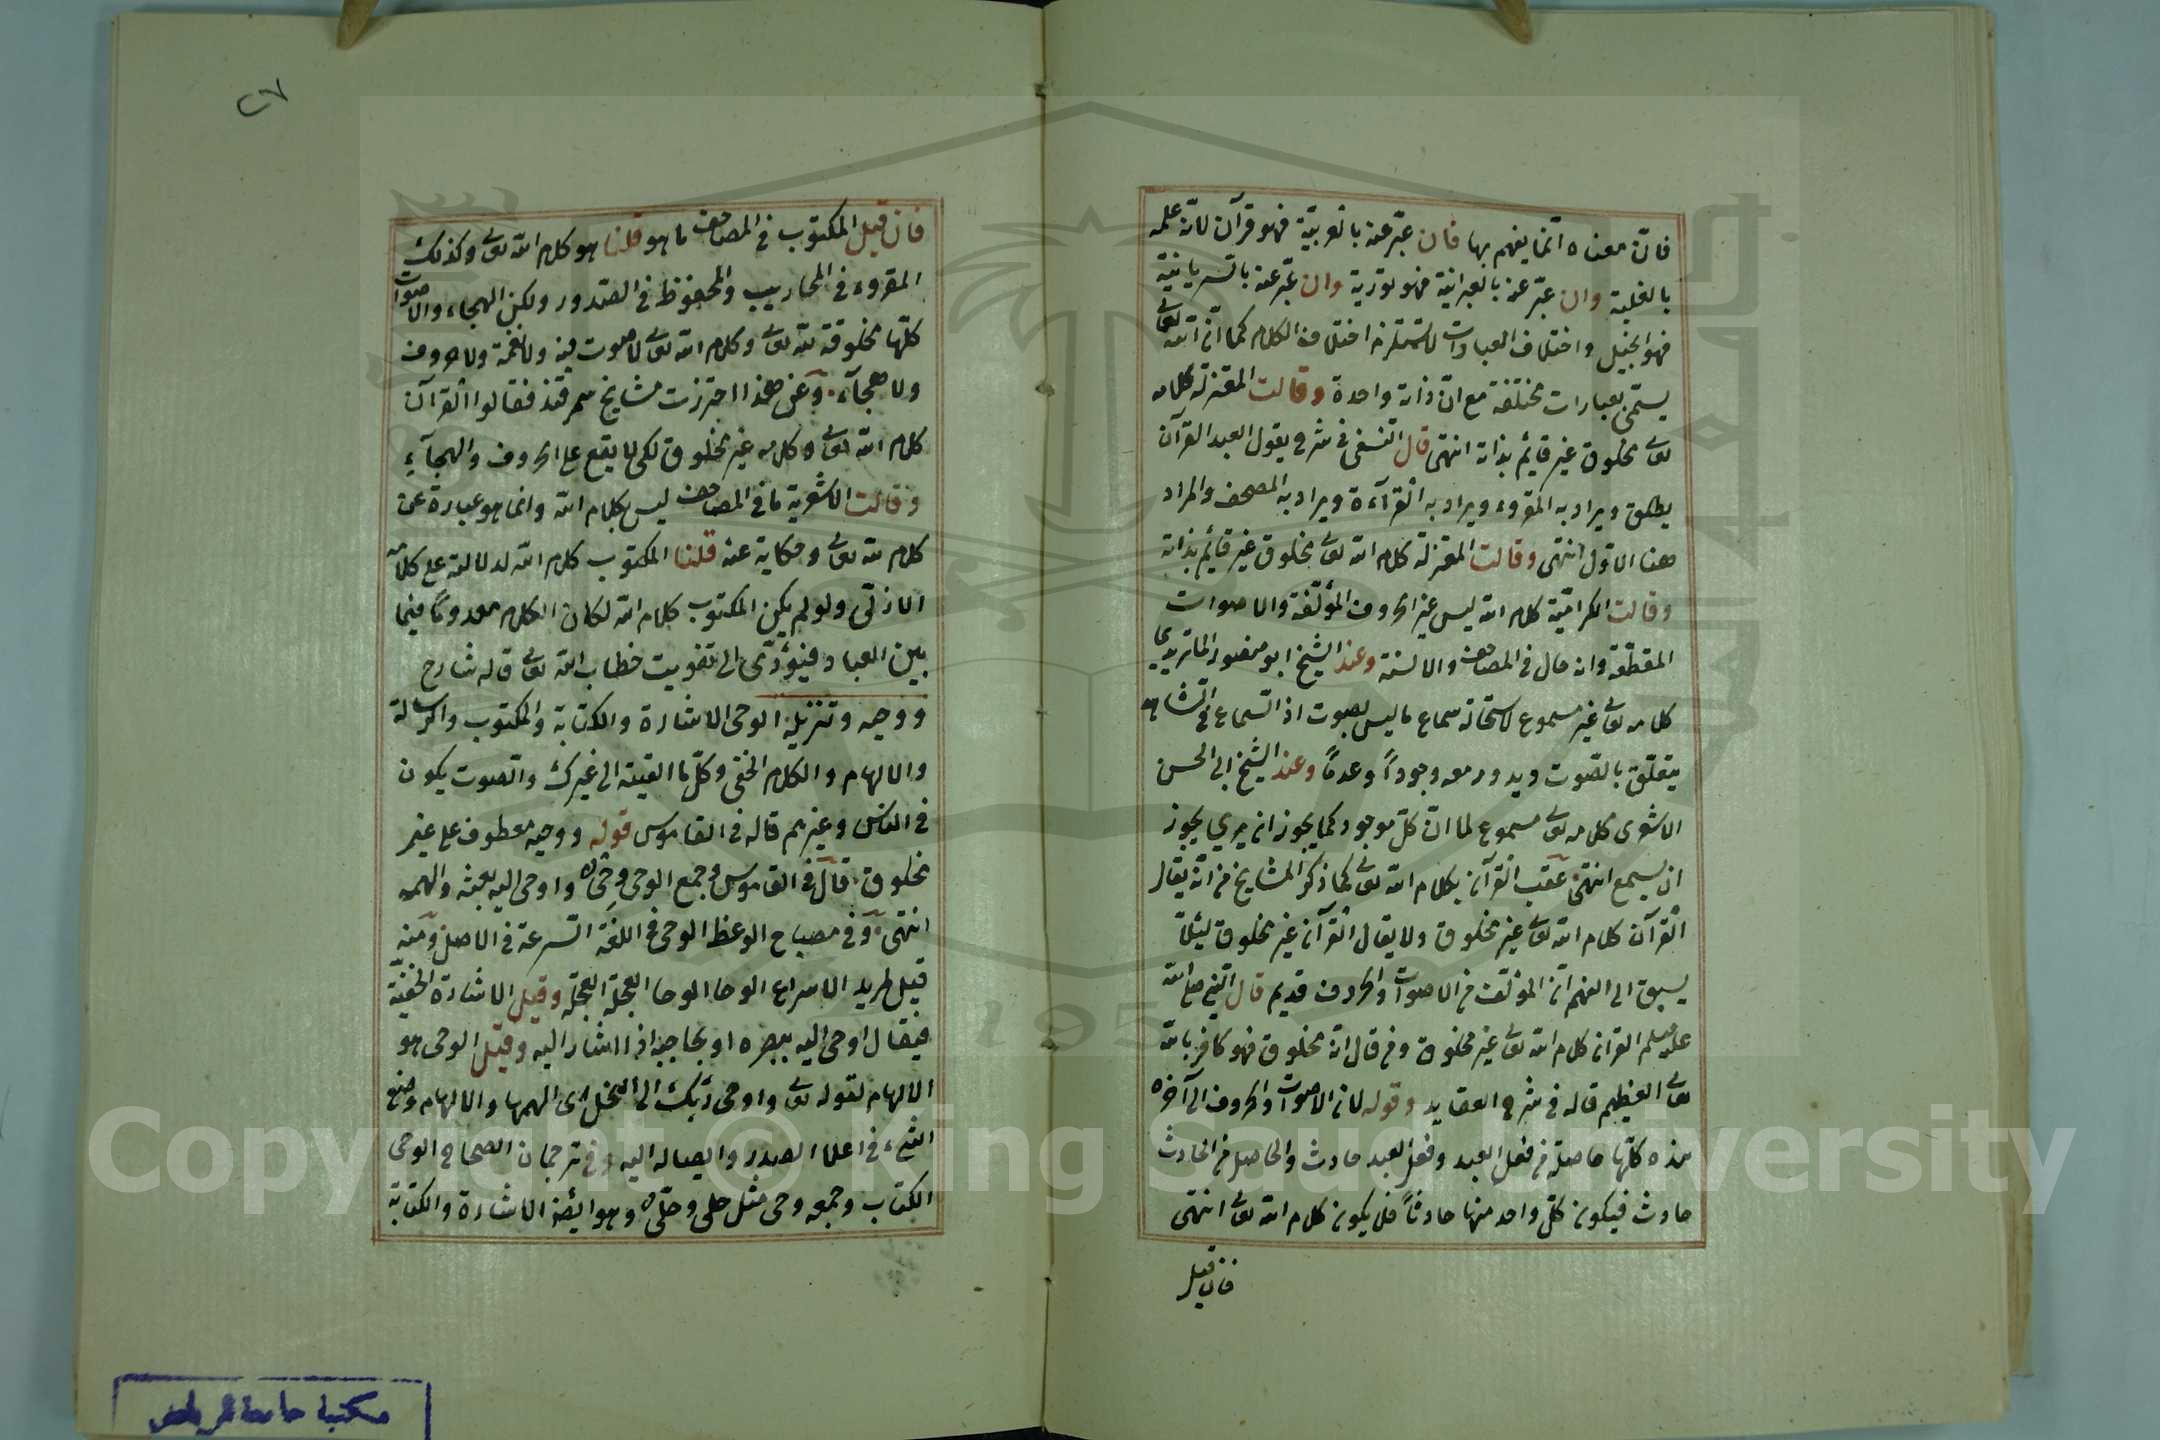 فانّ معناه انّما يفهم بها فان عبّر عنه بالعربيّة فهو قرآن لانّه علمه
بالغلبة وان عبّر عنه بالعبرانية فهو تورية وان عبّر عنه بالسّريانيّة
فهو انجيل واختلاف العبارات لا يستلزم اختلاف الكلام كما انّ الله تعالى
يسمّى بعبارات مختلفة مع انّ ذاته واحدة وقالت المعتزلة كلامه
تعالى مخلوق غير قائم بذاته انتهى قال النسفى فى شرح يقول العبد القرآن
يطلق ويراد به المقروء ويراد به القرآءة ويراد به المصحف والمراد
هنا الاوّل انتهى وقالت المعتزلة كلام الله تعالى مخلوق غير قائم بذاته
وقالت الكراميّة كلام الله ليس غير الحروف المؤلّفة والاصوات
المقطّعة وانه حال فى المصاحف والالسنة وعند الشيخ ابو منصور الماتريدي
كلامه تعالى غير مسموع لاستحالة سماع ما ليس بصوت اذ السّماع فى الشاهد
يتعلّق بالصّوت ويدور معه وجوداً وعدماً وعند الشيخ ابى الحسن
الاشعرى كلامه تعالى مسموع لما انّ كلّ موجود كما يجوز ان يرى يجوز
ان يسمع انتهى عقب القرآن بكلام الله تعالى لما ذكر المشايخ من انّه يقال
القرآن كلام الله تعالى غير مخلوق ولا يقال القرآن غير مخلوق لئلّا
يسبق الى الفهم انّ المؤلّف من الاصوات والحروف قديم قال النبى صلى الله
عليه وسلم القرآن كلام الله تعالى غير مخلوق ومن قال انه مخلوق فهو كافر بالله
تعالى العظيم قاله فى شرح العقايد وقوله لانّ الاصوات والحروف الى آخره
هذه كلّها حاصلة من فعل العبد وفعل العبد حادث والحاصل من الحادث
حادث فيكون كلّ واحد منها حادثاً فلا يكون كلام الله تعالى انتهى
فان قيل
٢٧
فان قيل المكتوب فى المصاحف ما هو قلنا هو كلام الله تعالى وكذلك
المقروء فى المحاريب والمحفوظ فى الصّدور ولكن الهجاء والاصوات
كلّها مخلوقة لله تعالى وكلام الله تعالى لا صوت فيه ولا نغمة ولا حروف
ولا هجآء. وعن هذا احترزت مشايخ سمرقند فقالوا القرآن
كلام الله تعالى وكلامه غير مخلوق لكى لا يقع على الحروف والهجآء
وقالت الاشعرية ما فى المصاحف ليس بكلام الله وانما هو عبارة عن
كلام الله تعالى وحكاية عنه قلنا المكتوب كلام الله لدلالته على كلامه
الازلى ولو لم يكن المكتوب كلام الله لكان الكلام معدوماً فيما
بين العباد فيؤدّى الى تفويت خطاب الله تعالى قاله شارح
ووحيه وتنزيله الوحى الاشارة والكتابة والمكتوب والرسالة
والالهام والكلام الخفى وكلّ ما القيته الى غيرك والصوت يكون
فى الناس وغيرهم قاله فى القاموس قوله ووحيه معطوف على غير
مخلوق. قال فى القاموس وجمع الوحى وحىّ واوحى اليه بعثه والهمه
انتهى. وفى مصباح الوعظ الوحى فى اللغة السرعة فى الاصل ومنه
قيل لمريد الاسراع الوحا الوحا العجلة العجلة وقيل الاشارة الخفيّة
فيقال اوحى اليه ببصره او بحاجبه اذا اشار اليه وقيل الوحى هو
الالهام لقوله تعالى واوحى ربّك الى النحل اى الهمها والالهام وضع
الشئ فى اعلا الصدر وايصاله اليه وفى ترجمان الصحاح الوحى
الكتاب وجمعه وحى مثل حلى وحلّى وهو ايضا الاشارة والكتابة
مكتبة جامعة الرياض
Copyright © King Saud University
195